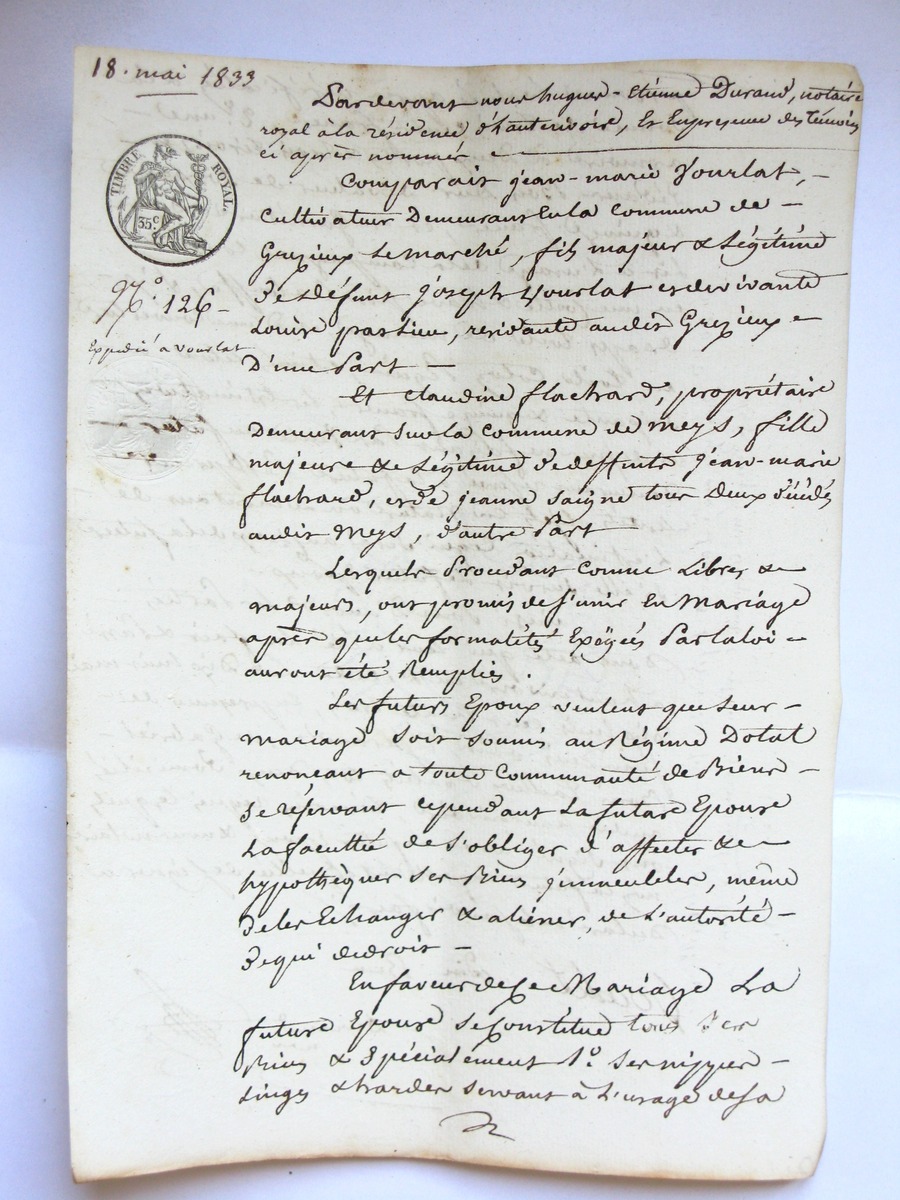 18. mai 1833
Pardevant nous hugues-Etienne Durand, notaire
royal à la résidence d'hauterivoire, Et En presence des témoins
ci après nommés
TIMBRE ROYAL.
35c.
Comparait jean-marie Vourlat,
Cultivateur Demeurant En la Commune de
Grezieux Le marché, fils majeur & Légitime
N.o 126
De défunt joseph Vourlat et de vivante
Louise passieu, residante audit Grezieux
Expedié a Vourlat
D'une Part
Et Claudine flachard, propriétaire
Demeurant Sur la Commune de meys, fille
majeure & Légitime de deffunts jean-marie
flachard, et de jeanne saigne tous Deux décédés
audit meys, d'autre Part
Lesquels Procedant comme Libres &
majeurs, ont promis de s'unir En Mariage
après que les formalités Exigées Par la loi
auront été Remplies.
Les futurs Epoux veulent que Leur
mariage soit soumis au Régime Dotal
renoncant a toute Communauté de Biens
Se réservant cependant La future Epouse
La faculté de s'obliger d'affecter &
hypothèquer Ses Biens jmmeubles, même
De les Echanger & aliéner, de L'autorité
De qui de droit
En faveur de Ce Mariage La
future Epouse Se Constitue tous Ses
Biens & Spécialement 1.o Ses nippes
Linges & hardes servant à L'usage de sa